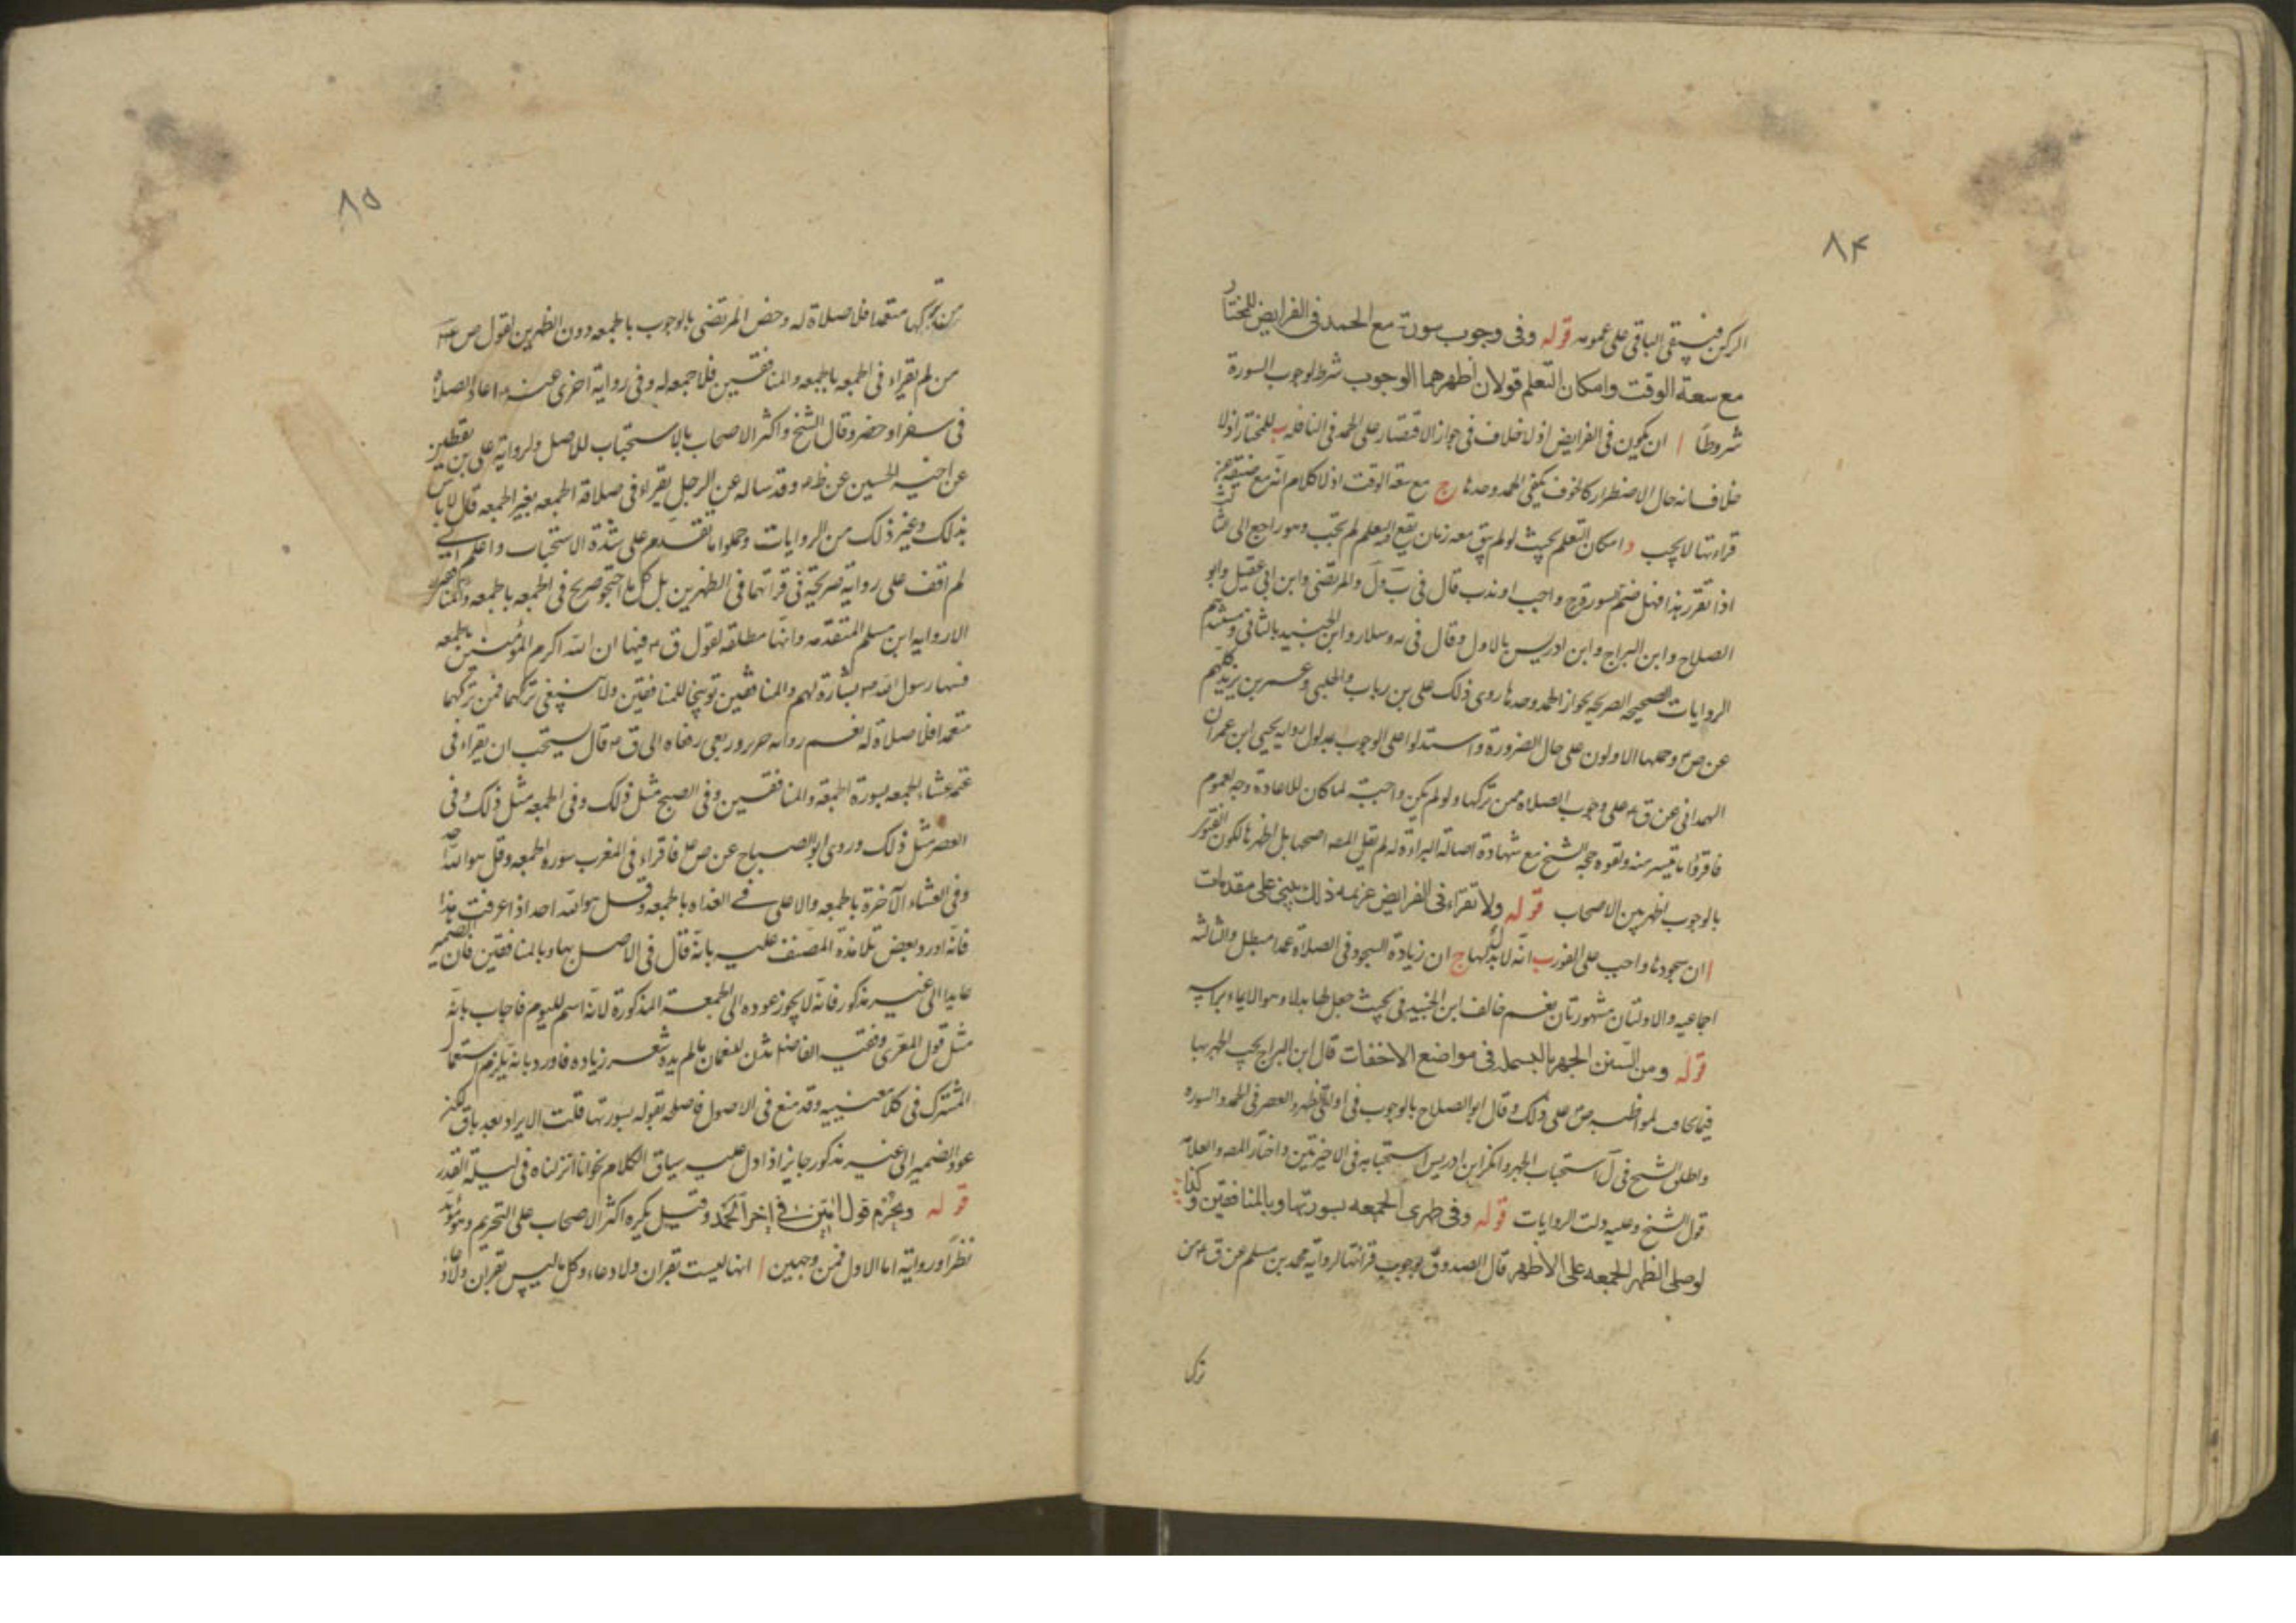 ٨۴
الركن فيبقى الباقى على عمومه قوله وفى وجوب سورة مع الحمد فى الفرايض للمختار
مع سعة الوقت وامكان التعلم قولان اظهرهما الوجوب شرط لوجوب السورة
شروطا ا ان يكون فى الفرايض اذ لا خلاف فى جواز الاقتصار على الحمد فى النافله ب للمختار اذ لا
خلاف انه حال الاضطرار كالخوف يكفى الحمد وحدها ج مع سعة الوقت اذ لا كلام انه مع ضيقه عن
قراءتها لا يجب د امكان التعلم بحيث لو لم يبق معه زمان يقع فيه التعلم لم تجب وهو راجع الى الثالث
اذا تقرر هذا فهل ضم سورة واجب او ندب قال فى ب ول والمرتضى وابن ابى عقيل وابو
الصلاح وابن البراج وابن ادريس بالاول وقال فى يه وسلار وابن الجنيد بالثانى ومستندهم
الروايات الصحيحه الصريحه بجواز الحمد وحدها روى ذلك على بن رياب والحلبى وعمر بن يزيد كلهم
عن ص ع وحملها الاولون على حال الضرورة واستدلوا على الوجوب بمدلول روايه يحيى ابن عمران
الهمدانى عن ق ع على وجوب الصلاه ممن تركها ولو لم يكن واجبة لما كان للاعادة وجه لعموم
فاقرؤا ما تيسر منه ولقوه حجه الشيخ مع شهادة اصالة البراءة له لم يقل المصه اصحها بل اظهرها لكون الفتوى
بالوجوب اظهر بين الاصحاب قوله ولا تقراء فى الفرايض عزيمه ذلك يبنى على مقدمات
ا ان سجودها واجب على الفور ب انه لا بدلها ج ان زيادة السجود فى الصلاة عمدا مبطل والثالثه
اجماعيه والاولتان مشهورتان نعم خالف ابن الجنيد فى بحيث جعل لها بدلا وهو الايماء براسه
قوله ومن السنن الجهر بالبسمله فى مواضع الاخفات قال ابن البراج يجب الجهر بها
فيما يخافت لمواظبه ص على ذلك وقال ابو الصلاح بالوجوب فى اولتى الظهر والعصر فى الحمد والسوره
واطلق الشيخ فى ل استحباب الجهر وانكر ابن ادريس استحبابه فى الاخيرتين واختار المصه والعلامه
قول الشيخ وعليه دلت الروايات قوله وفى ظهرى الجمعه بسورتها وبالمنافقين وكذا
لو صلى الظهر الجمعه على الاظهر قال الصدوق بوجوب قرائتها لرواية محمد بن مسلم عن ق ع من
ترك
٨۵
من تركها متعمدا فلا صلاة له وخص المرتضى بالوجوب بالجمعه دون الظهرين لقول ص ع
من لم يقراء فى الجمعه بالجمعه والمنافقين فلا جمعه له وفى رواية اخرى عنه ع اعاد الصلاه
فى سفر او حضر وقال الشيخ واكثر الاصحاب بالاستحباب للاصل ولرواية على بن يقطين
عن اخيه الحسين عن ظم ع وقد ساله عن الرجل يقراء فى صلاة الجمعه بغير الجمعه قال لا باس
بذلك وغير ذلك من الروايات وحملوا ما تقدم على شدة الاستحباب واعلم انى
لم اقف على رواية صريحة فى قرائتهما فى الظهرين بل كل ما احتجوا صريح فى الجمعه بالجمعه والمنافقين
الا روايه ابن مسلم المتقدمه وانها مطلقه لقول ق ع فيها ان الله اكرم المؤمنين بالجمعه
فسنها رسول الله ص بشارة لهم والمنافقين توبيخا للمنافقين ولا ينبغى تركهما فمن تركهما
متعمدا فلا صلاة له نعم روايه حريز وربعى رفعاه الى ق ع قال يستحب ان يقراء فى
عتمة عشاء الجمعه بسورة الجمعة والمنافقين وفى الصبح مثل ذلك وفى الجمعه مثل ذلك وفى
العصر مثل ذلك وروى ابو الصباح عن ص ع فاقراء فى المغرب سوره الجمعه وقل هو الله احد
وفى العشاء الآخرة بالجمعه والاعلى وفى الغداه بالجمعه وقل هو الله احد اذا عرفت هذا
فانه اورد بعض تلامذة المصنف عليه بانه قال فى الاصل بها وبالمنافقين فان الضمير
عايدا الى غير مذكور فانه لا يجوز عوده الى الجمعة المذكورة لانه اسم لليوم فاجاب بانه
مثل قول المعرى وفقيه الفاضل شدن للنعمان ما لم يده شعر زياده فاورد بانه يلزم استعمال
المشترك فى كلا معنييه وقد منع فى الاصول فاصلحه بقوله بسورتها قلت الايراد بعد باق لكن
عود الضمير الى غير مذكور جايز اذا دل عليه سياق الكلام نحو انا انزلناه فى ليلة القدر
قوله ويحرم قول امين فى اخر الحمد وقيل يكره اكثر الاصحاب على التحريم وهو مؤيد
نظرا ورواية اما الاول فمن وجهين ا انها ليست بقران ولا دعاء وكل ما ليس بقران ولا دعاء